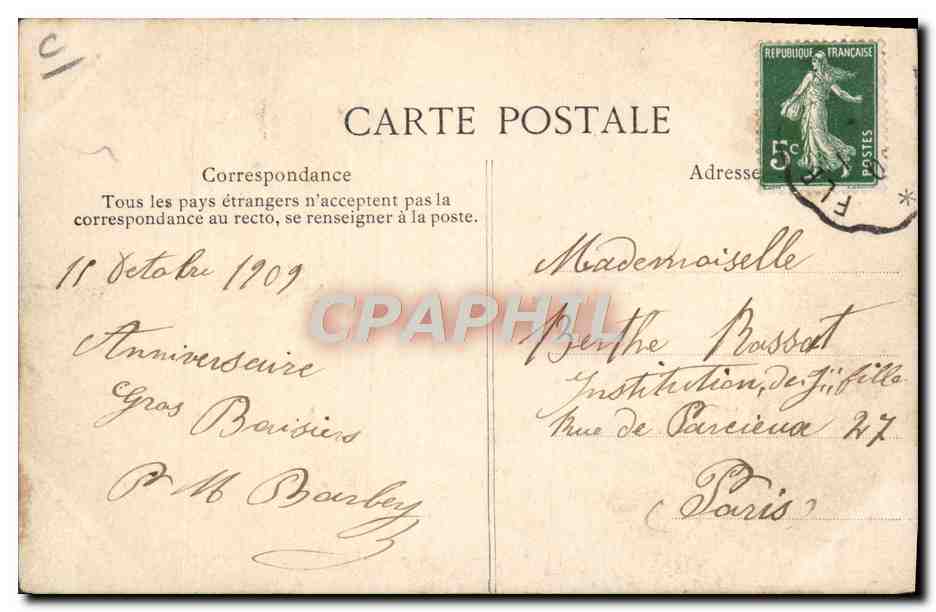 C/
CARTE POSTALE
REPUBLIQUE FRANÇAISE
5c
POSTES
FLR
Correspondance
Tous les pays étrangers n'acceptent pas la
correspondance au recto, se renseigner à la poste.
Adresse
11 Octobre 1909
Anniversaire
Gros Baisiers
P M Barbey
Mademoiselle
Berthe Rassat
Institution, de jii fille
Rue de Parcieux 27
(Paris)
CPAPHIL